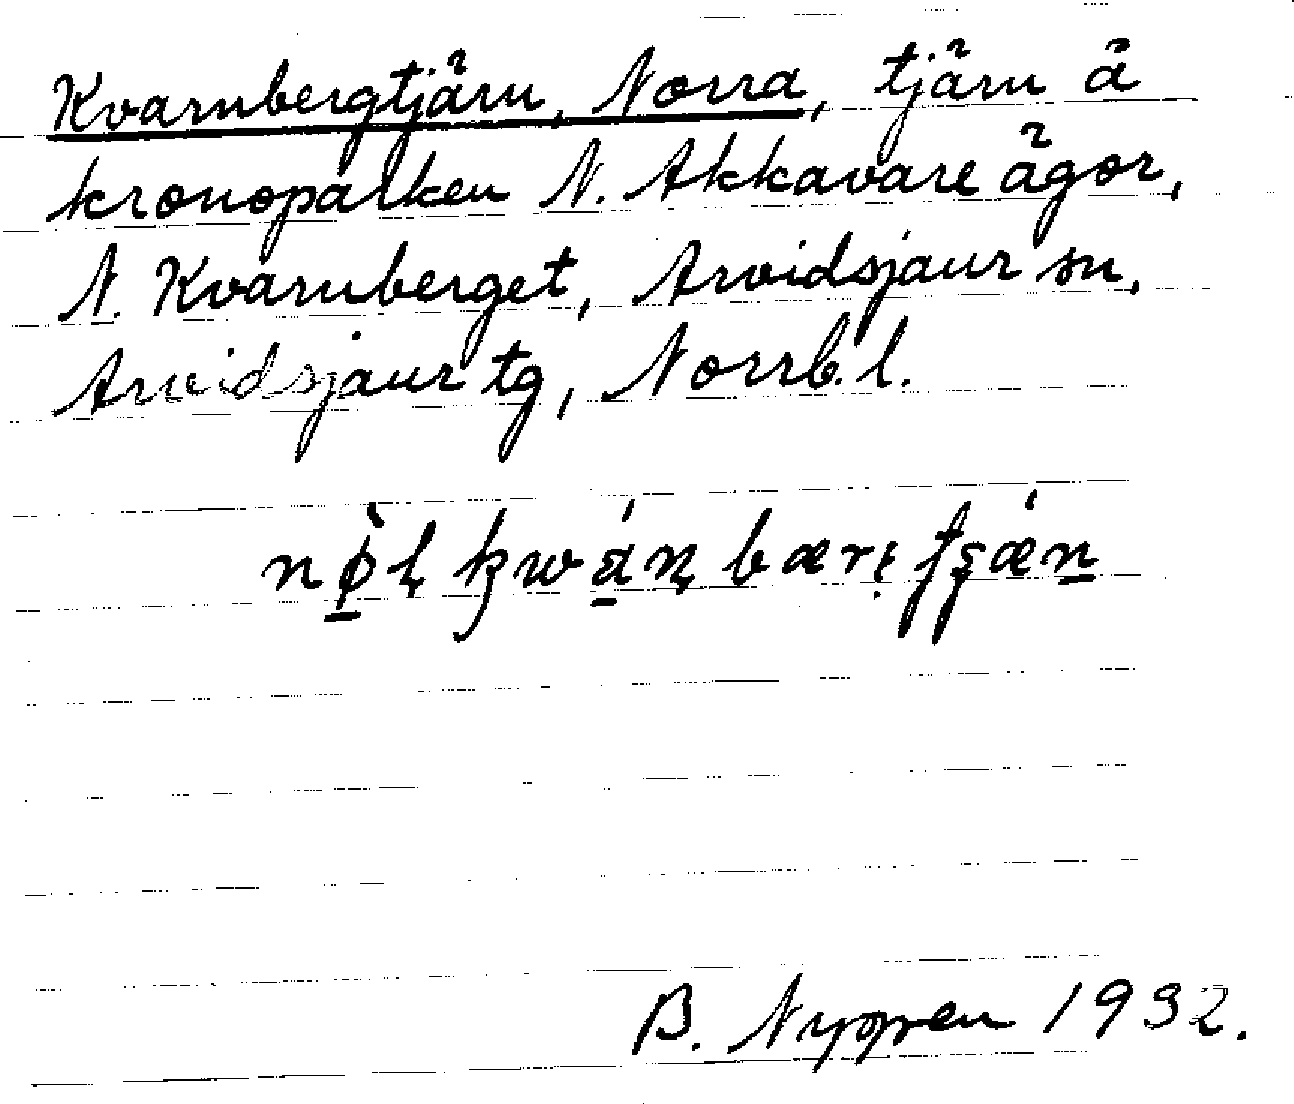 Kvarnbergtjärn, Norra, tjärn å
kronoparken N. Akkavare ägor,
N. Kvarnberget, Arvidsjaur sn,
Arvidsjaur tg, Norrb. l.
B. Nygren 1932.